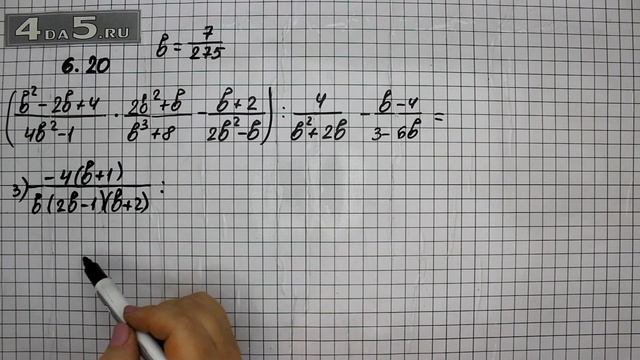 4DA5.RU
6.20 b = 7/275
((b² - 2b + 4)/(4b² - 1) · (2b² + b)/(b³ + 8) - (b + 2)/(2b² - b)) : 4/(b² + 2b) - (b - 4)/(3 - 6b) =
3) (-4(b+1))/(b(2b-1)(b+2)) :